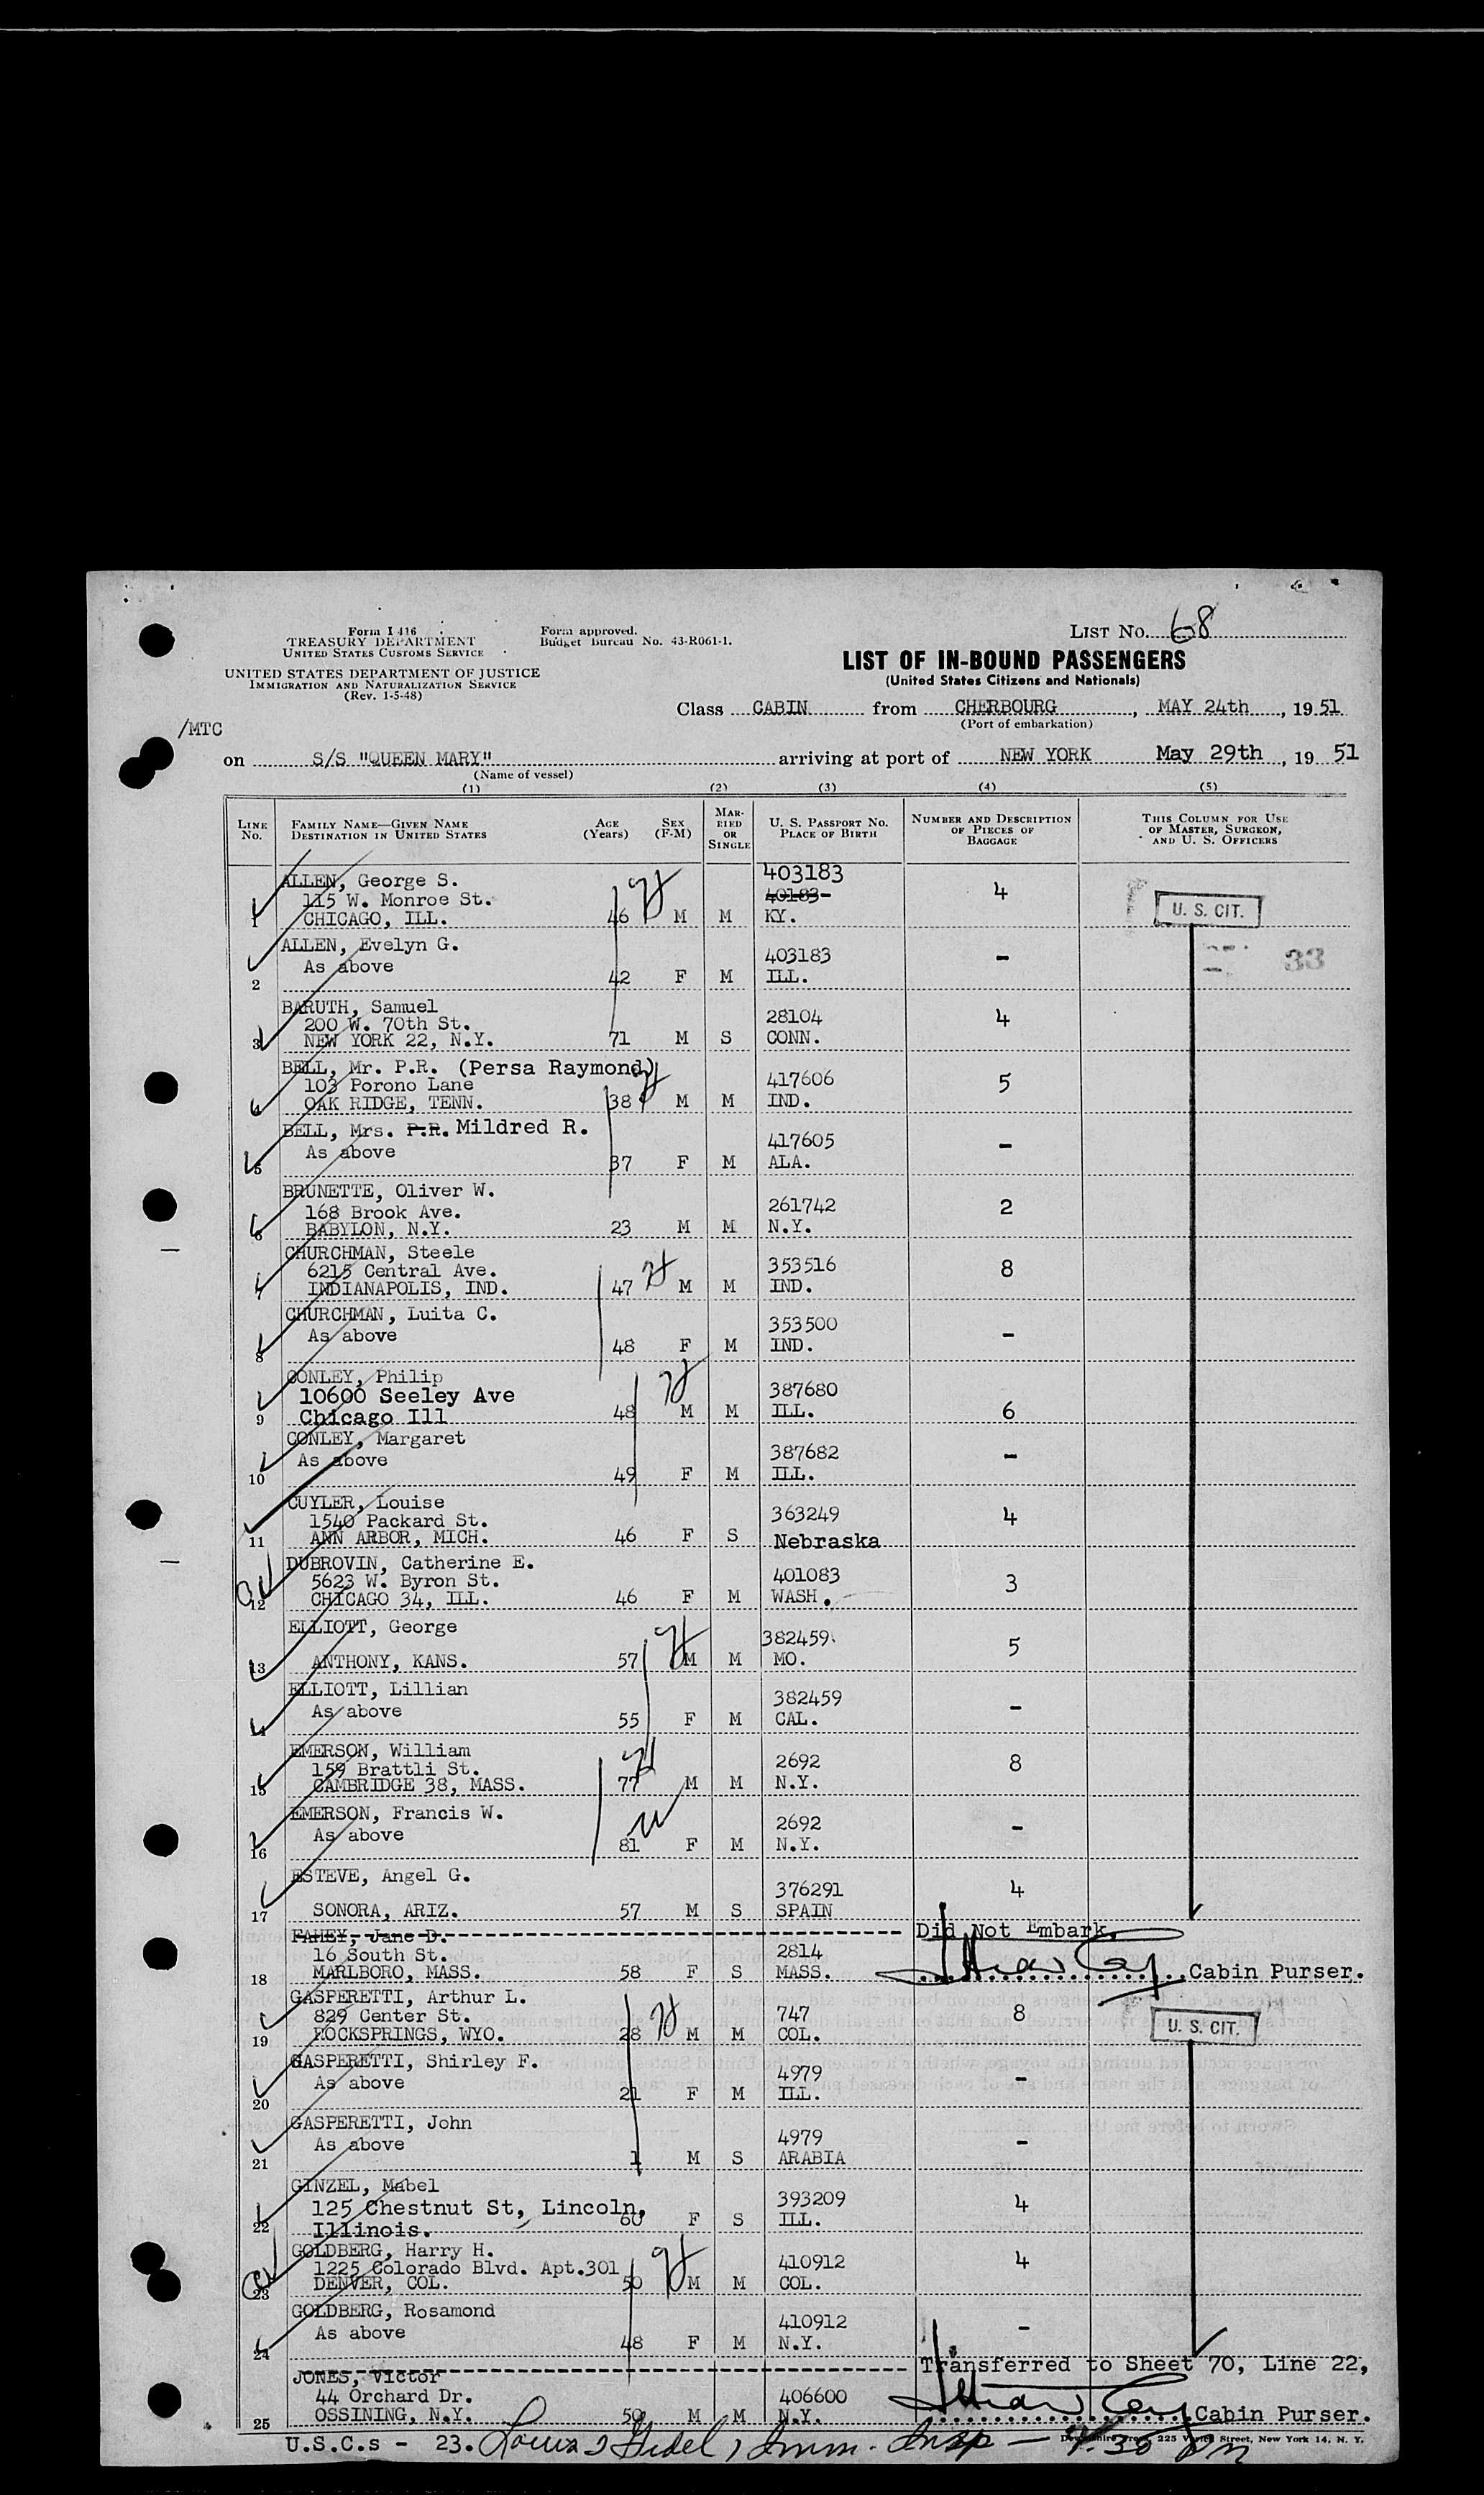 Form I 416
TREASURY DEPARTMENT
UNITED STATES CUSTOMS SERVICE
UNITED STATES DEPARTMENT OF JUSTICE
IMMIGRATION AND NATURALIZATION SERVICE
(Rev. 1-5-48)
Form approved.
Budget Bureau No. 43-R061-1.
LIST NO. 68
LIST OF IN-BOUND PASSENGERS
(United States Citizens and Nationals)
Class CABIN from CHERBOURG, MAY 24th, 1951
(Port of embarkation)
/MTC
on S/S "QUEEN MARY" arriving at port of NEW YORK May 29th, 19 51
(Name of vessel)
(1) (2) (3) (4) (5)
LINE NO. FAMILY NAME—GIVEN NAME DESTINATION IN UNITED STATES AGE (Years) SEX (F-M) MARRIED OR SINGLE U. S. PASSPORT NO. PLACE OF BIRTH NUMBER AND DESCRIPTION OF PIECES OF BAGGAGE THIS COLUMN FOR USE OF MASTER, SURGEON, AND U. S. OFFICERS
ALLEN, George S. 403183
115 W. Monroe St. 40183 4
1 CHICAGO, ILL. 46 M M KY. U. S. CIT.
ALLEN, Evelyn G. 403183 - 33
As above
2 42 F M ILL.
BARUTH, Samuel 28104 4
200 W. 70th St.
3 NEW YORK 22, N.Y. 71 M S CONN.
BELL, Mr. P.R. (Persa Raymond)
103 Porono Lane 417606 5
4 OAK RIDGE, TENN. 38 M M IND.
BELL, Mrs. P.R. Mildred R.
As above 417605 -
5 37 F M ALA.
BRUNETTE, Oliver W.
168 Brook Ave. 261742 2
6 BABYLON, N.Y. 23 M M N.Y.
CHURCHMAN, Steele
6215 Central Ave. 353516 8
7 INDIANAPOLIS, IND. 47 M M IND.
CHURCHMAN, Luita C.
As above 353500 -
8 48 F M IND.
CONLEY, Philip
10600 Seeley Ave 387680
9 Chicago Ill 48 M M ILL. 6
CONLEY, Margaret
As above 387682 -
10 49 F M ILL.
CUYLER, Louise
1540 Packard St. 363249 4
11 ANN ARBOR, MICH. 46 F S Nebraska
DUBROVIN, Catherine E.
5623 W. Byron St. 401083 3
12 CHICAGO 34, ILL. 46 F M WASH.
ELLIOTT, George
382459 5
13 ANTHONY, KANS. 57 M M MO.
ELLIOTT, Lillian
As above 382459 -
14 55 F M CAL.
EMERSON, William
159 Brattli St. 2692 8
15 CAMBRIDGE 38, MASS. 77 M M N.Y.
EMERSON, Francis W.
As above 2692 -
16 81 F M N.Y.
ESTEVE, Angel G.
376291 4
17 SONORA, ARIZ. 57 M S SPAIN
FAHEY, Jane D. Did Not Embark,
16 South St. 2814
18 MARLBORO, MASS. 58 F S MASS. Cabin Purser.
GASPERETTI, Arthur L.
829 Center St. 747 8
19 ROCKSPRINGS, WYO. 28 M M COL. U. S. CIT.
GASPERETTI, Shirley F.
As above 4979 -
20 21 F M ILL.
GASPERETTI, John
As above 4979 -
21 1 M S ARABIA
GINZEL, Mabel
125 Chestnut St, Lincoln, 393209 4
22 Illinois. 60 F S ILL.
GOLDBERG, Harry H.
1225 Colorado Blvd. Apt.301 410912 4
23 DENVER, COL. 50 M M COL.
GOLDBERG, Rosamond
As above 410912 -
24 48 F M N.Y.
JONES, Victor Transferred to Sheet 70, Line 22,
44 Orchard Dr. 406600
25 OSSINING, N.Y. 50 M M N.Y. Cabin Purser.
U.S.C.s - 23. Imm. Insp — 30 pm
225 Varick Street, New York 14, N. Y.